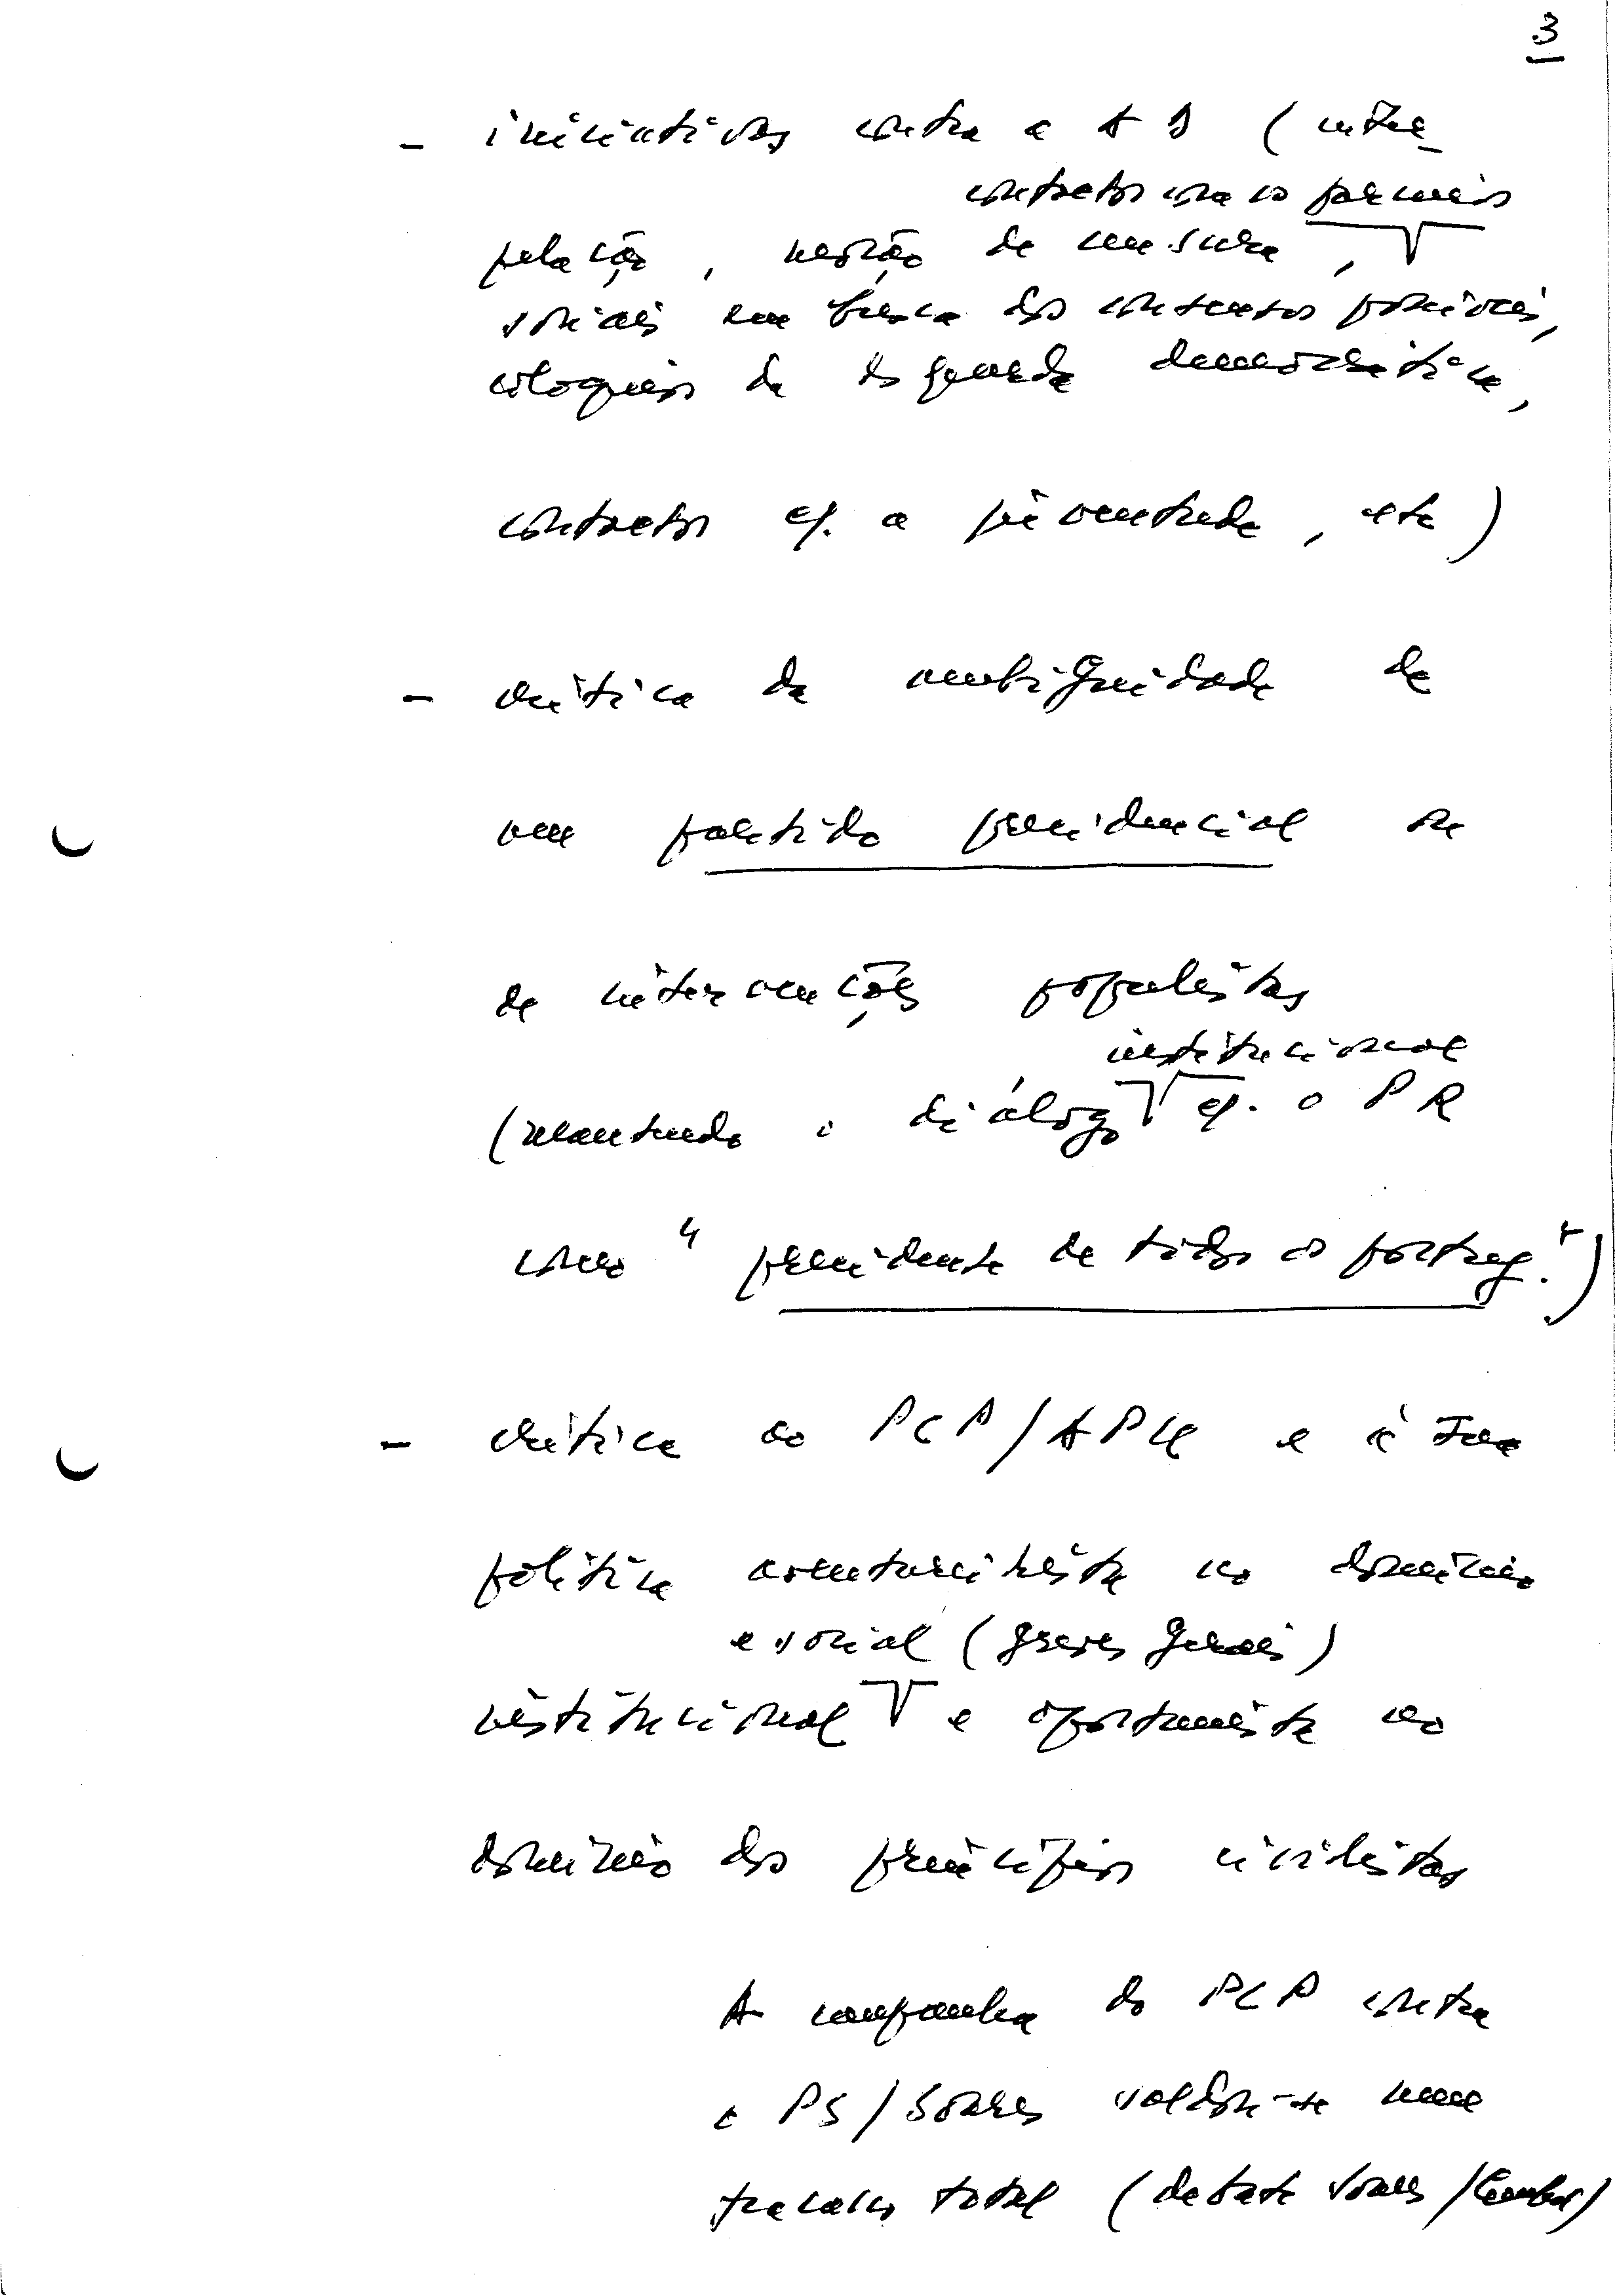 3
- iniciativas contra a AD (inter-
contactos com os parceiros
pelação, moção de censura,
sociais em busca dos consensos possíveis,
coloquios da esquerda democrática,
contactos c/. a juventude, etc)
- crítica da ambiguidade de
um partido presidencial ou
de intervenções populistas
institucional
(mantendo o diálogo c/. o PR
como "presidente de todos os portug.")
- crítica ao PCP/APU e à sua
política aventureirista no domínio
e social (greves gerais)
institucional e oportunista no
domínio dos princípios civilistas
A campanha do PCP contra
o PS/Soares saldou-se num
fracasso total (debate Soares/Cunhal)